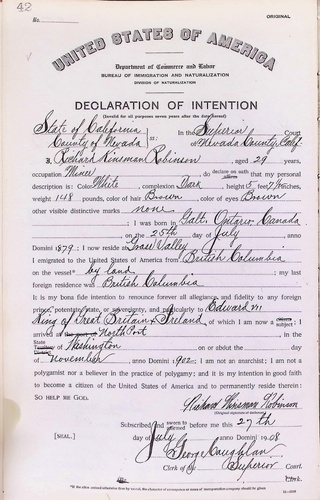 42
ORIGINAL
No.
UNITED STATES OF AMERICA
Department of Commerce and Labor
BUREAU OF IMMIGRATION AND NATURALIZATION
DIVISION OF NATURALIZATION
DECLARATION OF INTENTION
(Invalid for all purposes seven years after the date hereof)
State of California
County of Nevada } ss:
In the Superior Court
of Nevada County, Calif.
I, Richard Kinsman Robinson, aged 29 years,
occupation Miner, do declare on oath that my personal
description is: Color White, complexion Dark, height 5 feet 7½ inches,
weight 148 pounds, color of hair Brown, color of eyes Brown
other visible distinctive marks none
; I was born in Galt, Ontario, Canada
on the 25th day of July, anno
Domini 1879; I now reside at Grass Valley
I emigrated to the United States of America from British Columbia
on the vessel* by land; my last
foreign residence was British Columbia
It is my bona fide intention to renounce forever all allegiance and fidelity to any foreign
prince, potentate, state, or sovereignty, and particularly to Edward VII
King of Great Britain & Ireland, of which I am now a subject; I
arrived at the port of North Port, in the
State of Washington on or about the day
of November, anno Domini 1902; I am not an anarchist; I am not a
polygamist nor a believer in the practice of polygamy; and it is my intention in good faith
to become a citizen of the United States of America and to permanently reside therein:
SO HELP ME GOD.
Richard Kinsman Robinson
(Original signature of declarant)
Subscribed and sworn to before me this 27th
[SEAL.] day of July, anno Domini 1908
George Coughlan
Clerk of the Superior Court.